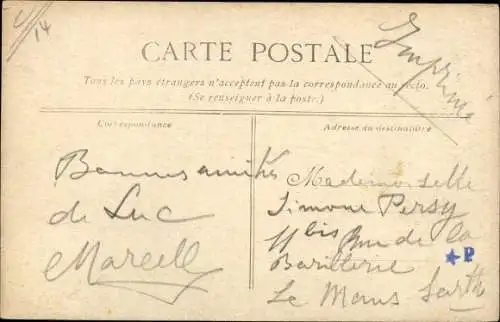 4/14
CARTE POSTALE
Imprimé
Tous les pays étrangers n'acceptent pas la correspondance au recto.
(Se renseigner à la poste.)
Correspondance
Adresse du destinataire
Bonnes amitiés
de Luc
Marcell
Mademoiselle
Simone Persy
11 bis Rue de la
Barillerie
Le Mans Sarthe
★P